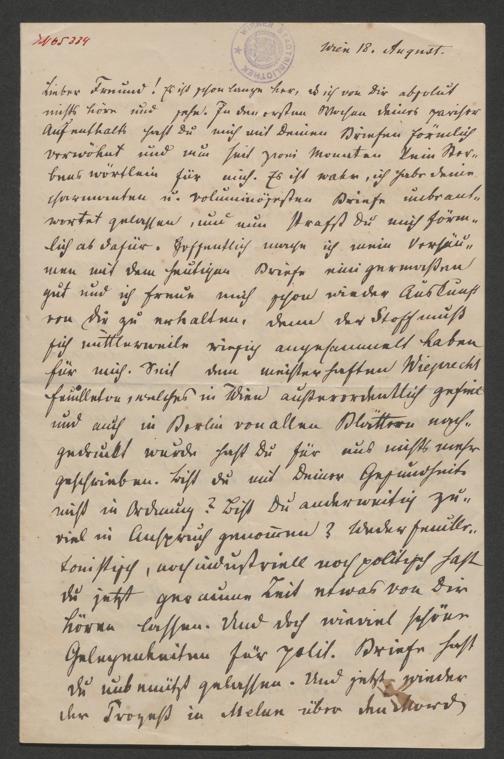 IN 65.224
WIENER STADTBIBLIOTHEK
Wien 18. August.
Lieber Freund! Es ist schon lange her, daß ich von dir absolut
nichts höre und sehe. In den ersten Wochen deines pariser
Aufenthalts hast du mich mit deinen Briefen förmlich
verwöhnt und nun seit zwei Monaten kein Ster-
benswörtlein für mich. Es ist wahr, ich habe deine
charmanten u. voluminösesten Briefe unbeant-
wortet gelassen, und nun strafst du mich förm-
lich ab dafür. Hoffentlich mache ich mein Versäu-
men mit dem heutigen Briefe einigermaßen
gut und ich freue mich schon wieder Auskunft
von dir zu erhalten, denn der Stoff muß
sich mittlerweile riesig angesammelt haben
für mich. Seit dem meisterhaften Wieprecht
Feuilleton, welches in Wien außerordentlich gefiel
und auch in Berlin von allen Blättern nach-
gedruckt wurde hast du für uns nichts mehr
geschrieben. Bist du mit deiner Gesundheit
nicht in Ordnung? Bist du anderweitig zu-
viel in Anspruch genommen? Weder feuille-
tonistisch, noch industriell noch politisch hast
du jetzt geraume Zeit etwas von dir
hören lassen. Und doch wieviel schöne
Gelegenheiten für polit. Briefe hast
du unbenützt gelassen. Und jetzt wieder
der Prozeß in Melun über den Mord